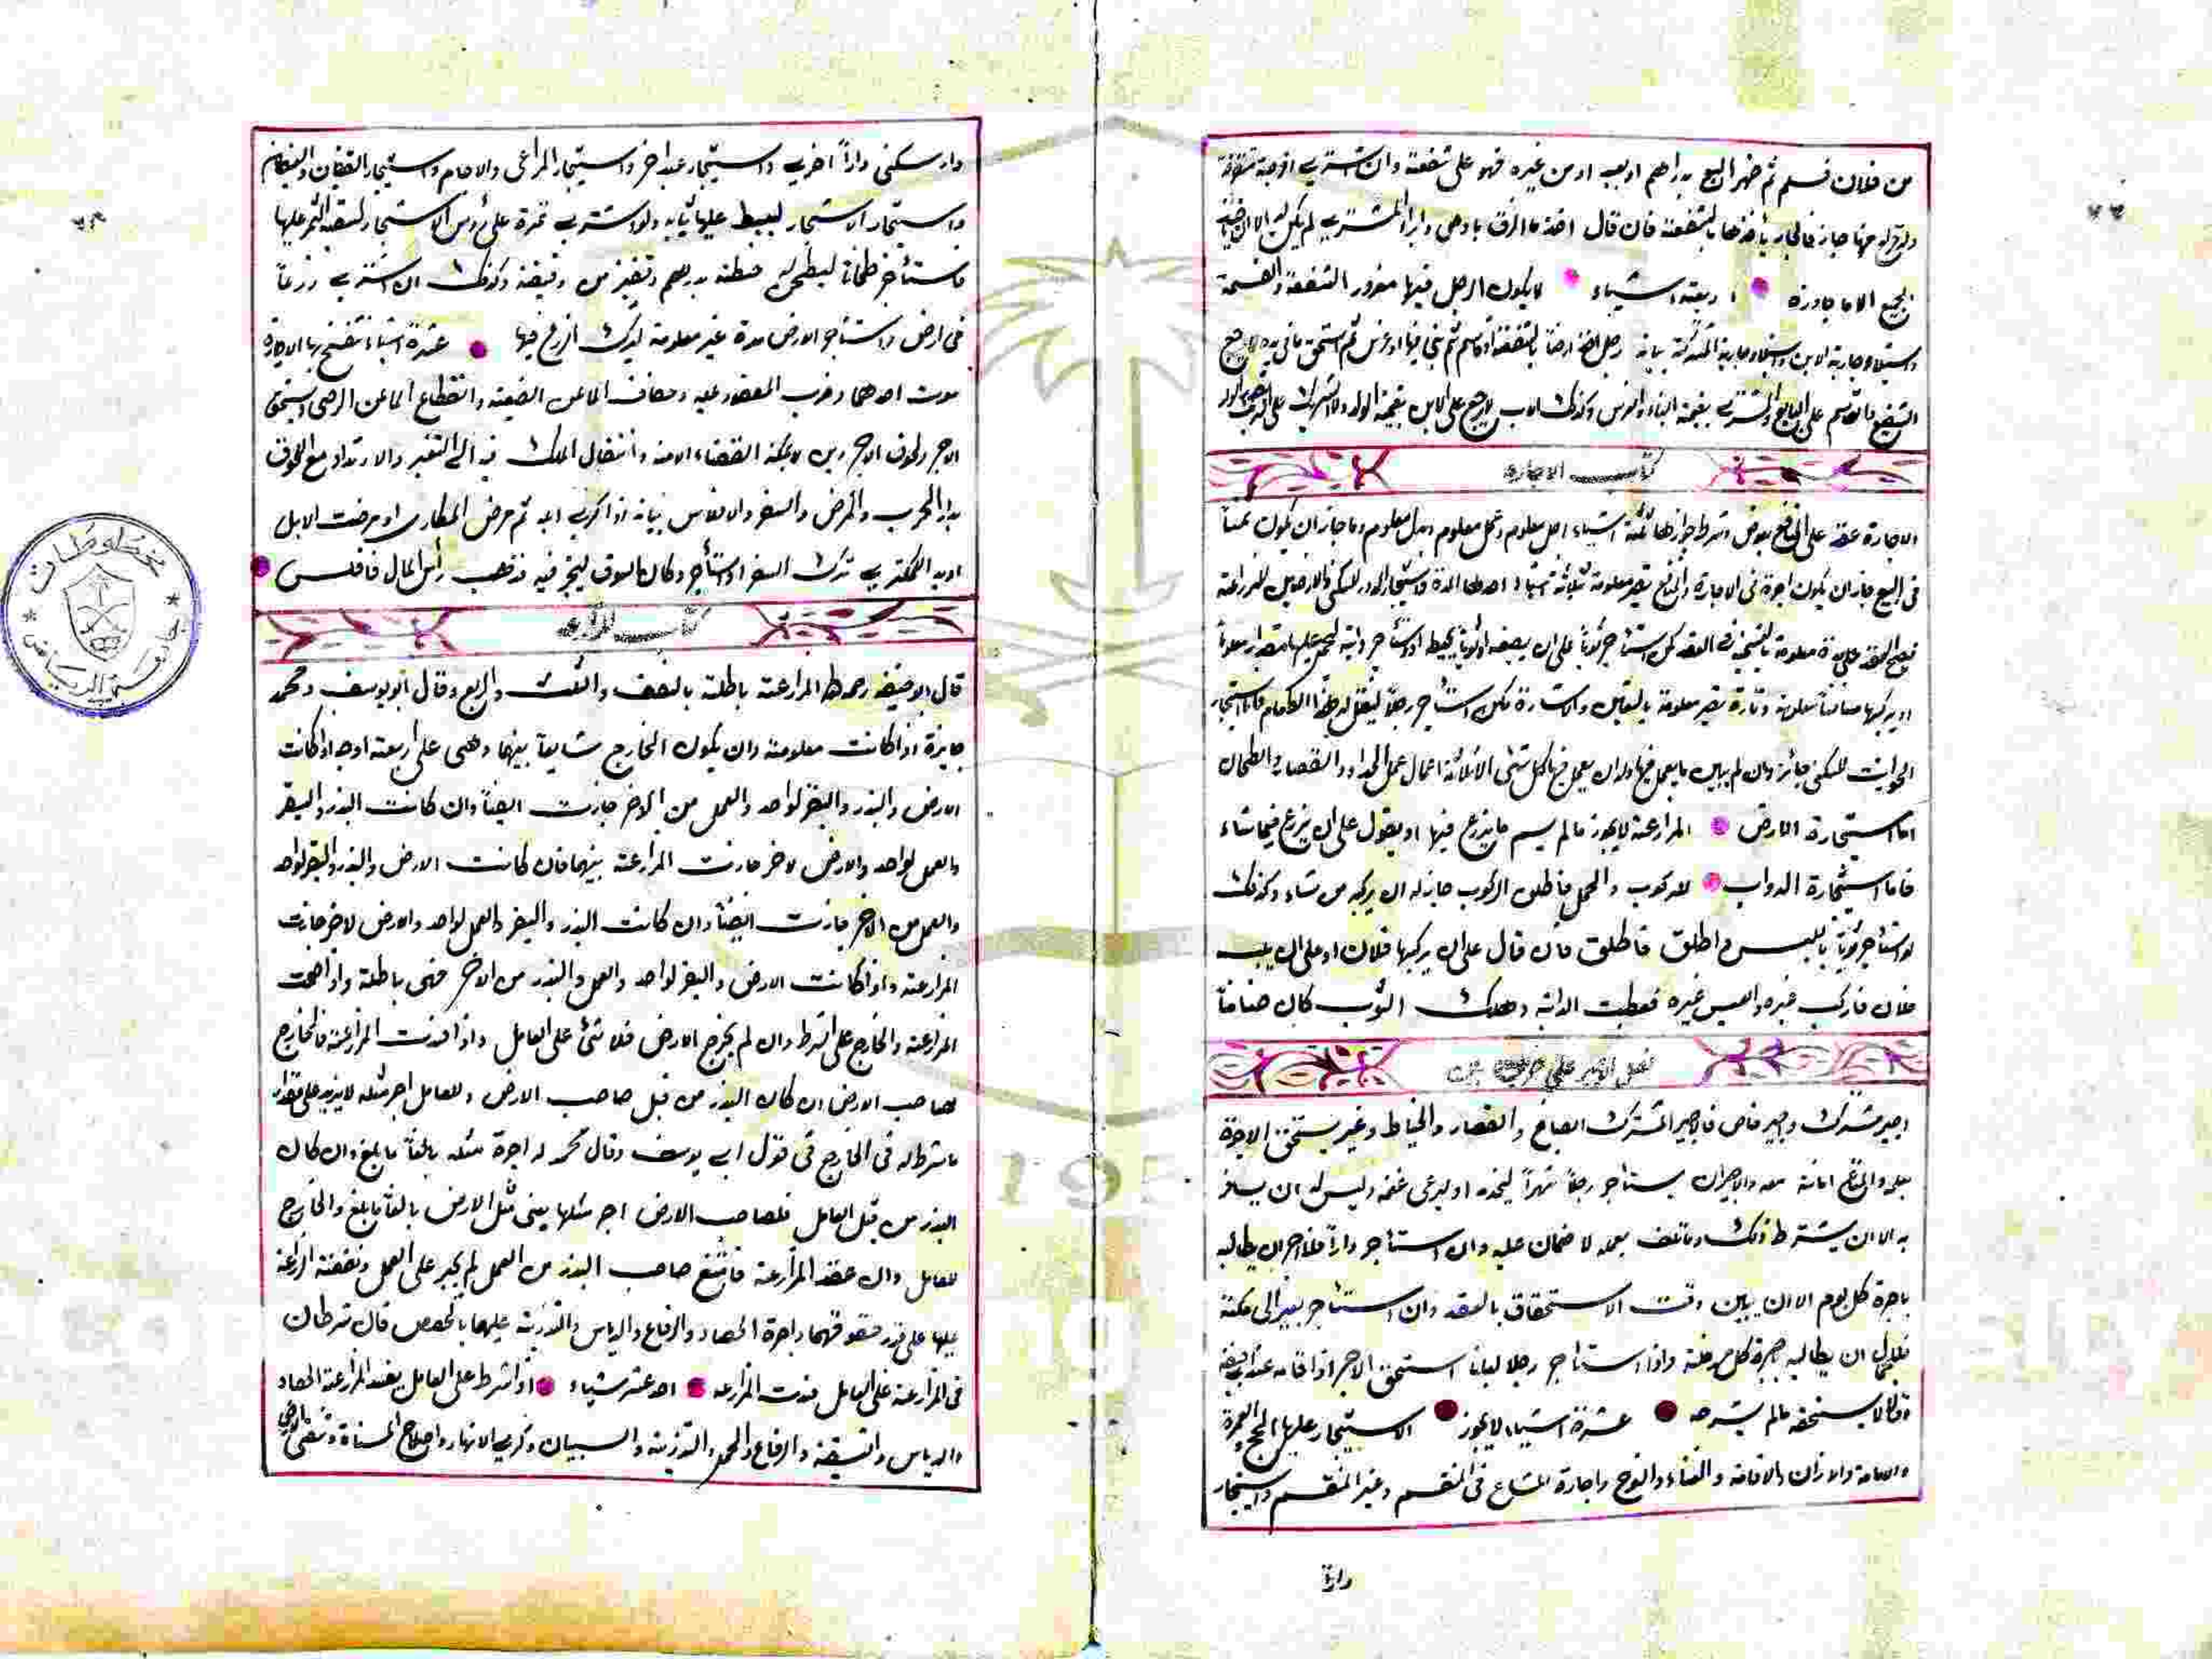 من فلان فسلم ثم ظهر البيع بدراهم او بعبد او من غيره فهو على شفعته وان اشترى
جاز فالجار يأخذها بالشفعة فان قال المشترى لم يكن له الا ان
بجميع الا ما جاوزه اربعة اشياء لا يكون الرجل فيها مغرور الشفعة والقسمة
واستيلاد جارية الابن واستيلاد جارية المشتركة بيانه رجل اخذ ارضاً بالشفعة او قاسم ثم بنى فيها او غرس ثم استحق لا يرجع
الشفيع والمقاسم على البايع والمشترى بقيمة البناء والغرس وكذلك الاب لا يرجع على الابن بقيمة الولد ولا الشريك على
كتاب الاجارة
الاجارة عقد على المنافع بعوض وشرط جوازها ثلثة اشياء اجل معلوم وعمل معلوم وبدل معلوم وما جاز ان يكون ثمناً
فى البيع جاز ان يكون اجرة فى الاجارة والمنافع تصير معلومة بثلاثة اشياء احدها المدة كاستيجار الدور للسكنى والارضين للزراعة
فيصح العقد على مدة معلومة بالتسمية فى العقد كمن استأجر ثوباً على ان يصبغه او ثوباً يخيط او استأجر دابة ليحمل عليها مقداراً معلوماً
او يركبها مسافة معلومة وتارة تصير معلومة بالتعيين والاشارة كمن استأجر رجلاً لينقل له هذا الطعام فاما استيجار
الحوانيت للسكنى جائزة وان لم يبين ما يعمل فيها وله ان يعمل فيها كل شئ الا ثلاثة اعمال عمل الحداد والقصار والطحان
اما استيجارة الارض المزارعة لا يجوز ما لم يسم ما يزرع فيها او يقول على ان يزرع فيها ما شاء
فاما استيجارة الدواب للركوب والحمل فاطلق الركوب جاز له ان يركبه من شاء وكذلك
لو استأجر ثوباً باللبس واطلق فاطلق فان قال على ان يركبها فلان او على ان يلبس
فلان فاركب غيره والبس غيره فعطبت الدابة وهلك الثوب كان ضامناً
فصل الاجير على ضربين
اجير مشترك واجير خاص فالاجير المشترك الصباغ والقصار والخياط وغير يستحق الاجرة
والمتاع امانة معه والاجير ان يستأجر رجلاً شهراً ليخدمه او ليرعى غنمه وليس له ان يسافر
به الا ان يشترط ذلك وما تلف بعمله لا ضمان عليه وان استأجر داراً فللآجر ان يطالبه
باجرة كل يوم الا ان يبين وقت الاستحقاق بالعقد وان استأجر بعيراً الى مكة
فللجمال ان يطالبه باجرة كل مرحلة واذا استأجر رجلا لبانا استحق الاجر اذا اقامه عند ابى حنيفة
وقالا لا يستحقه ما لم يشرحه عشرة اشياء لا يجوز الاستيجار عليها الحج والعمرة
والامامة والاذان والاقامة والغناء والنوح واجارة المشاع فى المنقسم وغير المنقسم واستيجار
دارا
دار سكنى داراً اخرى واستيجار عبد اخر واستيجار المراعى والاجام واستيجار
واستيجار الاشجار ليبسط عليها ثيابه ولو اشترى ثمرة على رؤس الاشجار لتبقية الثمر عليها
واستأجر طحاناً ليطحن له حنطة بدرهم وقفيز من دقيقه وكذلك ان اشترى زرعاً
فى ارض واستأجر الارض مدة غير معلومة ليترك الزرع فيها عشرة اشياء تنفسخ بها الاجارة
موت احدهما وخرب المعقود عليه وجفاف الماء عن الضيعة وانقطاع الماء عن الرحى
الاجر دين لا يمكنه القضاء الا منه وانتقال الملك فيه الى الغير والارتداد مع اللحوق
بدار الحرب والمرض والسفر والافلاس بيانه اذا اكرى ابله ثم مرض المكارى او مرضت الابل
او بدا للمكترى ترك السفر او استأجر دكان بالسوق ليتجر فيه فذهب رأس المال فافلس
كتاب المزارعة
قال ابو حنيفة رحمه الله المزارعة باطلة بالنصف والثلث والربع وقال ابو يوسف ومحمد
جايزة اذا كانت معلومة وان يكون الخارج شايعاً بينهما وهى على اربعة اوجه اذا كانت
الارض والبذر والبقر لواحد والعمل من الاخر جازت ايضاً وان كانت البذر والبقر
والعمل لواحد والارض لاخر جازت المزارعة بينهما فان كانت الارض والبذر والبقر لواحد
والعمل من الاخر جازت ايضاً وان كانت البذر والبقر والعمل لواحد والارض لاخر جازت
المزارعة واذا كانت الارض والبقر لواحد والعمل والبذر من الاخر فهى باطلة واذا صحت
المزارعة والخارج على الشرط وان لم يخرج الارض فلا شئ على العامل واذا فسدت المزارعة فالخارج
لصاحب الارض ان كان البذر من قبل صاحب الارض وللعامل اجر مثله لا يزيد على مقدار
ما شرط له فى الخارج فى قول ابى يوسف وقال محمد له اجرة مثله بالغاً ما بلغ وان كان
البذر من قبل العامل فلصاحب الارض اجر مثلها يعنى مثل الارض بالغاً ما بلغ والخارج
للعامل وان عقد المزارعة فامتنع صاحب البذر من العمل لم يجبر على العمل ونفقة الزراعة
عليها على قدر حقوقهما واجرة الحصاد والرفاع والدياس والتذرية عليهما بالحصص فان شرطاه
فى المزارعة على العامل فسدت المزارعة احد عشر شياء اذا شرط على العامل يفسد المزارعة الحصاد
والدياس والتنقية والرفاع والحمل والتذرية والسبيان وكرى الانهار واصلاح المسناة
مخطوطات
جامعة الرياض